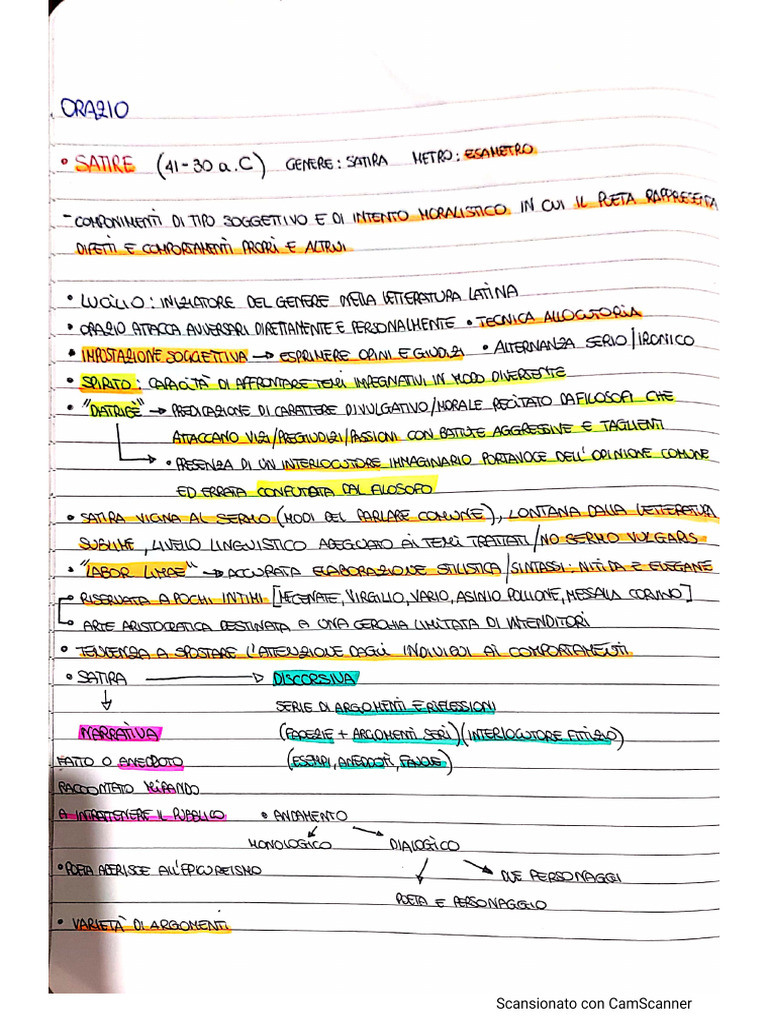 ORAZIO
• SATIRE (41-30 a.C) GENERE: SATIRA METRO: ESAMETRO
- COMPONIMENTI DI TIPO SOGGETTIVO E DI INTENTO MORALISTICO IN CUI IL POETA RAPPRESENTA
DIFETTI E COMPORTAMENTI PROPRI E ALTRUI
• LUCILIO: INIZIATORE DEL GENERE NELLA LETTERATURA LATINA
• ORAZIO ATTACCA AVVERSARI DIRETTAMENTE E PERSONALMENTE • TECNICA ALLOCUTORIA
• IMPOSTAZIONE SOGGETTIVA → ESPRIMERE OPINI E GIUDIZI • ALTERNANZA SERIO/IRONICO
• SPIRITO: CAPACITÀ DI AFFRONTARE TEMI IMPEGNATIVI IN MODO DIVERTENTE
• "DIATRIBE" → PREDICAZIONE DI CARATTERE DIVULGATIVO/MORALE RECITATO DA FILOSOFI CHE
ATTACCANO VIZI/PREGIUDIZI/PASSIONI CON BATTUTE AGGRESSIVE E TAGLIENTI
→ • PRESENZA DI UN INTERLOCUTORE IMMAGINARIO PORTAVOCE DELL'OPINIONE COMUNE
ED ERRATA CONFUTATA DAL FILOSOFO
• SATIRA VICINA AL SERMO (MODI DEL PARLARE COMUNE), LONTANA DALLA LETTERATURA
SUBLIME, LIVELLO LINGUISTICO ADEGUATO AI TEMI TRATTATI/NO SERMO VULGARIS
• "LABOR LIMAE" → ACCURATA ELABORAZIONE STILISTICA/SINTASSI: NITIDA E ELEGANE
• RISERVATA A POCHI INTIMI [MECENATE, VIRGILIO, VARIO, ASINIO POLLIONE, MESSALLA CORVINO]
• ARTE ARISTOCRATICA DESTINATA A UNA CERCHIA LIMITATA DI INTENDITORI
• TENDENZA A SPOSTARE L'ATTENZIONE DAGLI INDIVIDUI AI COMPORTAMENTI
• SATIRA → DISCORSIVA
SERIE DI ARGOMENTI E RIFLESSIONI
NARRATIVA (FACEZIE + ARGOMENTI SERI) (INTERLOCUTORE FITTIZIO)
FATTO O ANEDDOTO (ESEMPI, ANEDDOTI, FAVOLE)
RACCONTATO MIRANDO
A INTRATTENERE IL PUBBLICO • ANDAMENTO
MONOLOGICO DIALOGICO
• POETA ADERISCE ALL'EPICUREISMO DUE PERSONAGGI
POETA E PERSONAGGIO
• VARIETÀ DI ARGOMENTI
Scansionato con CamScanner